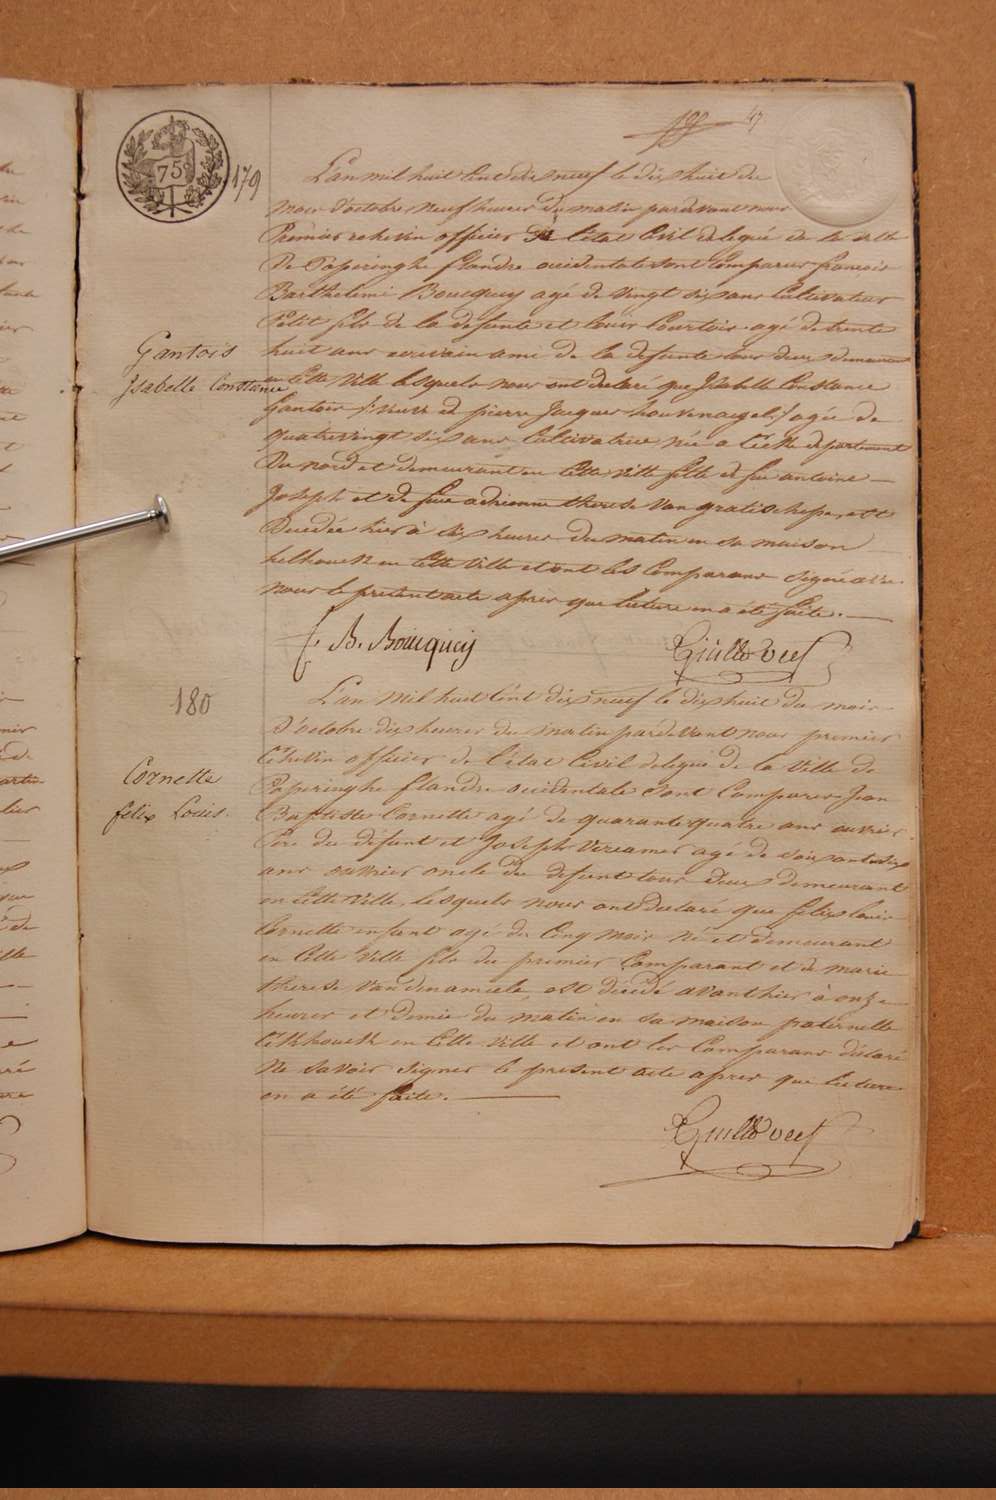 47
75
179
L'an mil huit Cent dix neuf le dix huit du
mois d'octobre neuf heures du matin pardevant nous
Premier echevin officier de l'état Civil delegué de la ville
De Poperinghe flandre occidentale sont Comparus françois
Barthelemi Boucquey agé de vingt six ans Cultivateur
Petit fils de la defunte et louis Courtois agé de trente
huit ans ecrivain ami de la defunte tous deux demeurant
Gantois
Isabelle Constance
en Cette ville lesquels nous ont declaré que Isabelle Constance
Gantois veuve de pierre Jacques agée de
quatrevingt six ans Cultivatrice née a departement
Du nord et demeurant en Cette ville fille de feu antoine
Joseph et de feue adrienne therese est
Decedée hier à dix heures du matin en sa maison
helhouck en Cette ville et ont les Comparans signé avec
nous le present acte apres que lecture en a été faite.
f. B. Boucquey
180
L'an mil huit Cent dix neuf le dix huit du mois
d'octobre dix heures du matin pardevant nous premier
Echevin officier de l'état Civil delegué de la ville de
Poperinghe flandre occidentale sont Comparus Jean
Cornette
felix Louis.
Baptiste Cornette agé de quarante quatre ans ouvrier
Pere du défunt et Joseph agé de soixante six
ans ouvrier oncle du defunt tous deux demeurant
en Cette ville, lesquels nous ont declaré que felix louis
Cornette enfant agé de Cinq mois né et demeurant
en Cette ville fils du premier Comparant et de marie
therese est décédé avanthier à onze
heures et demie du matin en sa maison paternelle
en Cette ville et ont les Comparans déclaré
Ne savoir signer le present acte apres que lecture
en a été faite.